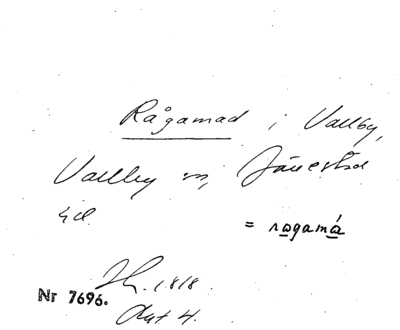 Rågamad i Vallby,
Vallby sn, Järrestad
hd
= ragamá
Nr 7696.
1818.
Akt 4.